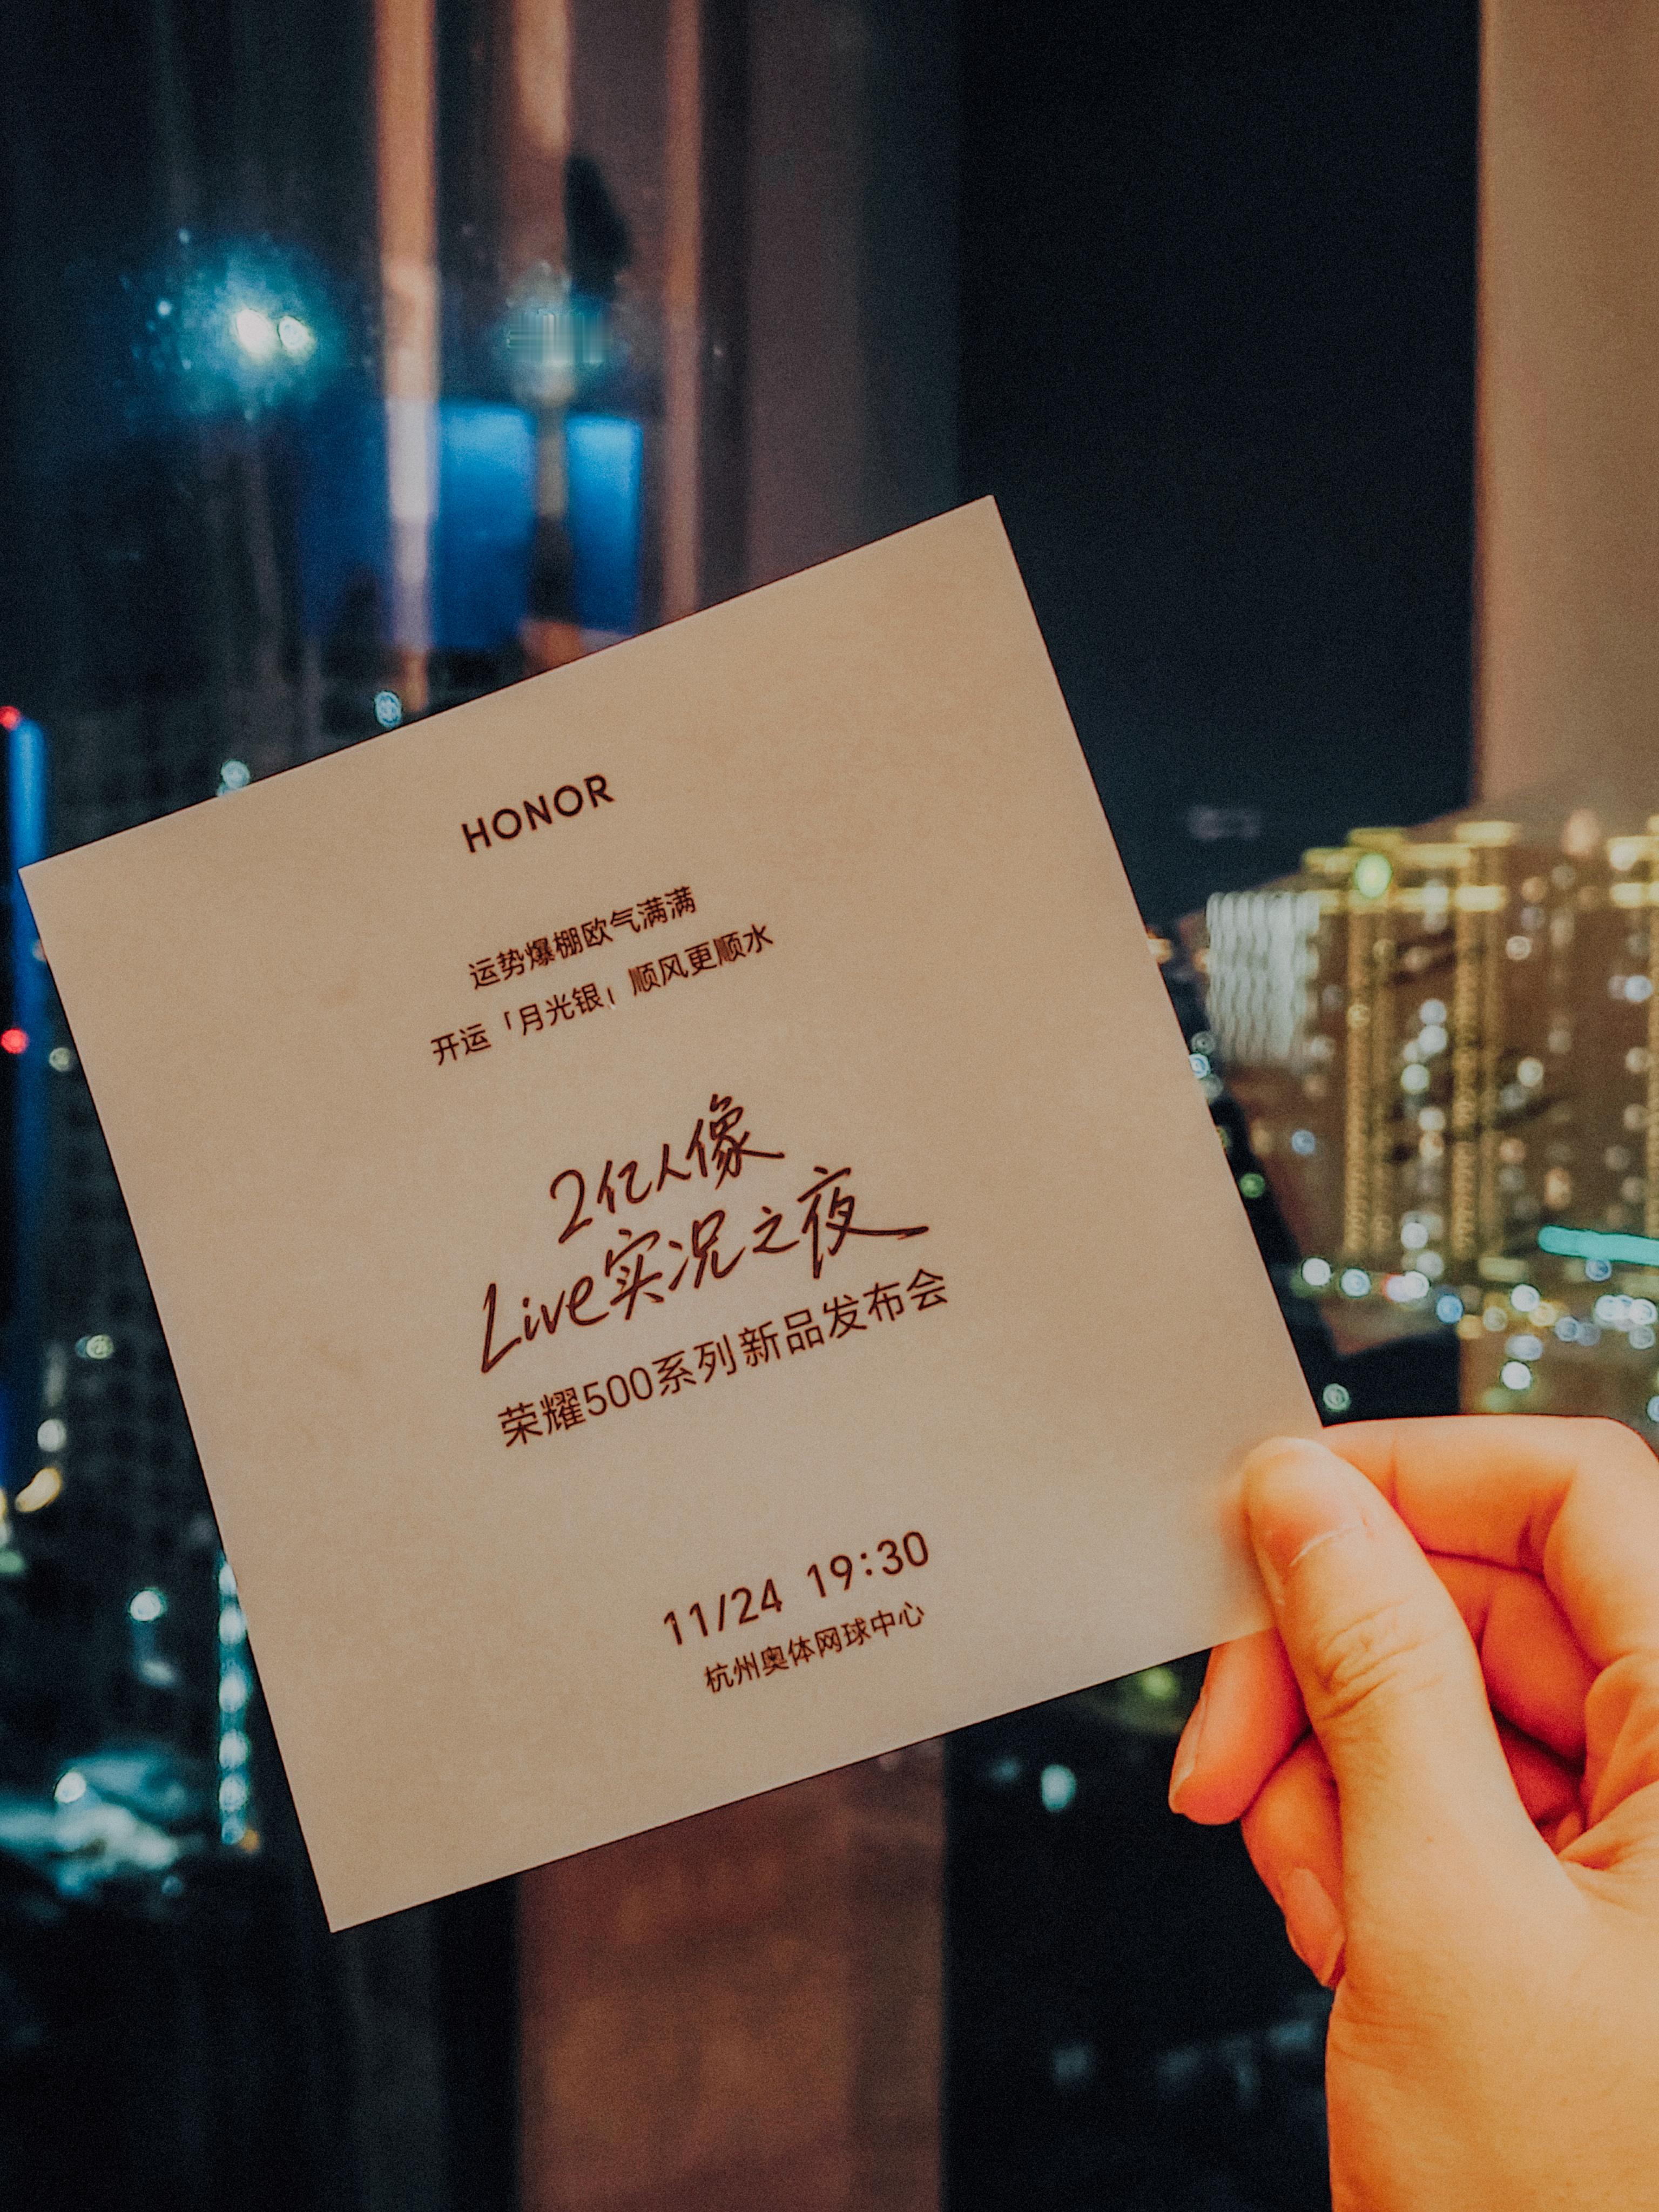 HONOR
运势爆棚欧气满满
开运「月光银」顺风更顺水
2亿人像
Live实况之夜
荣耀500系列新品发布会
11/24 19:30
杭州奥体网球中心